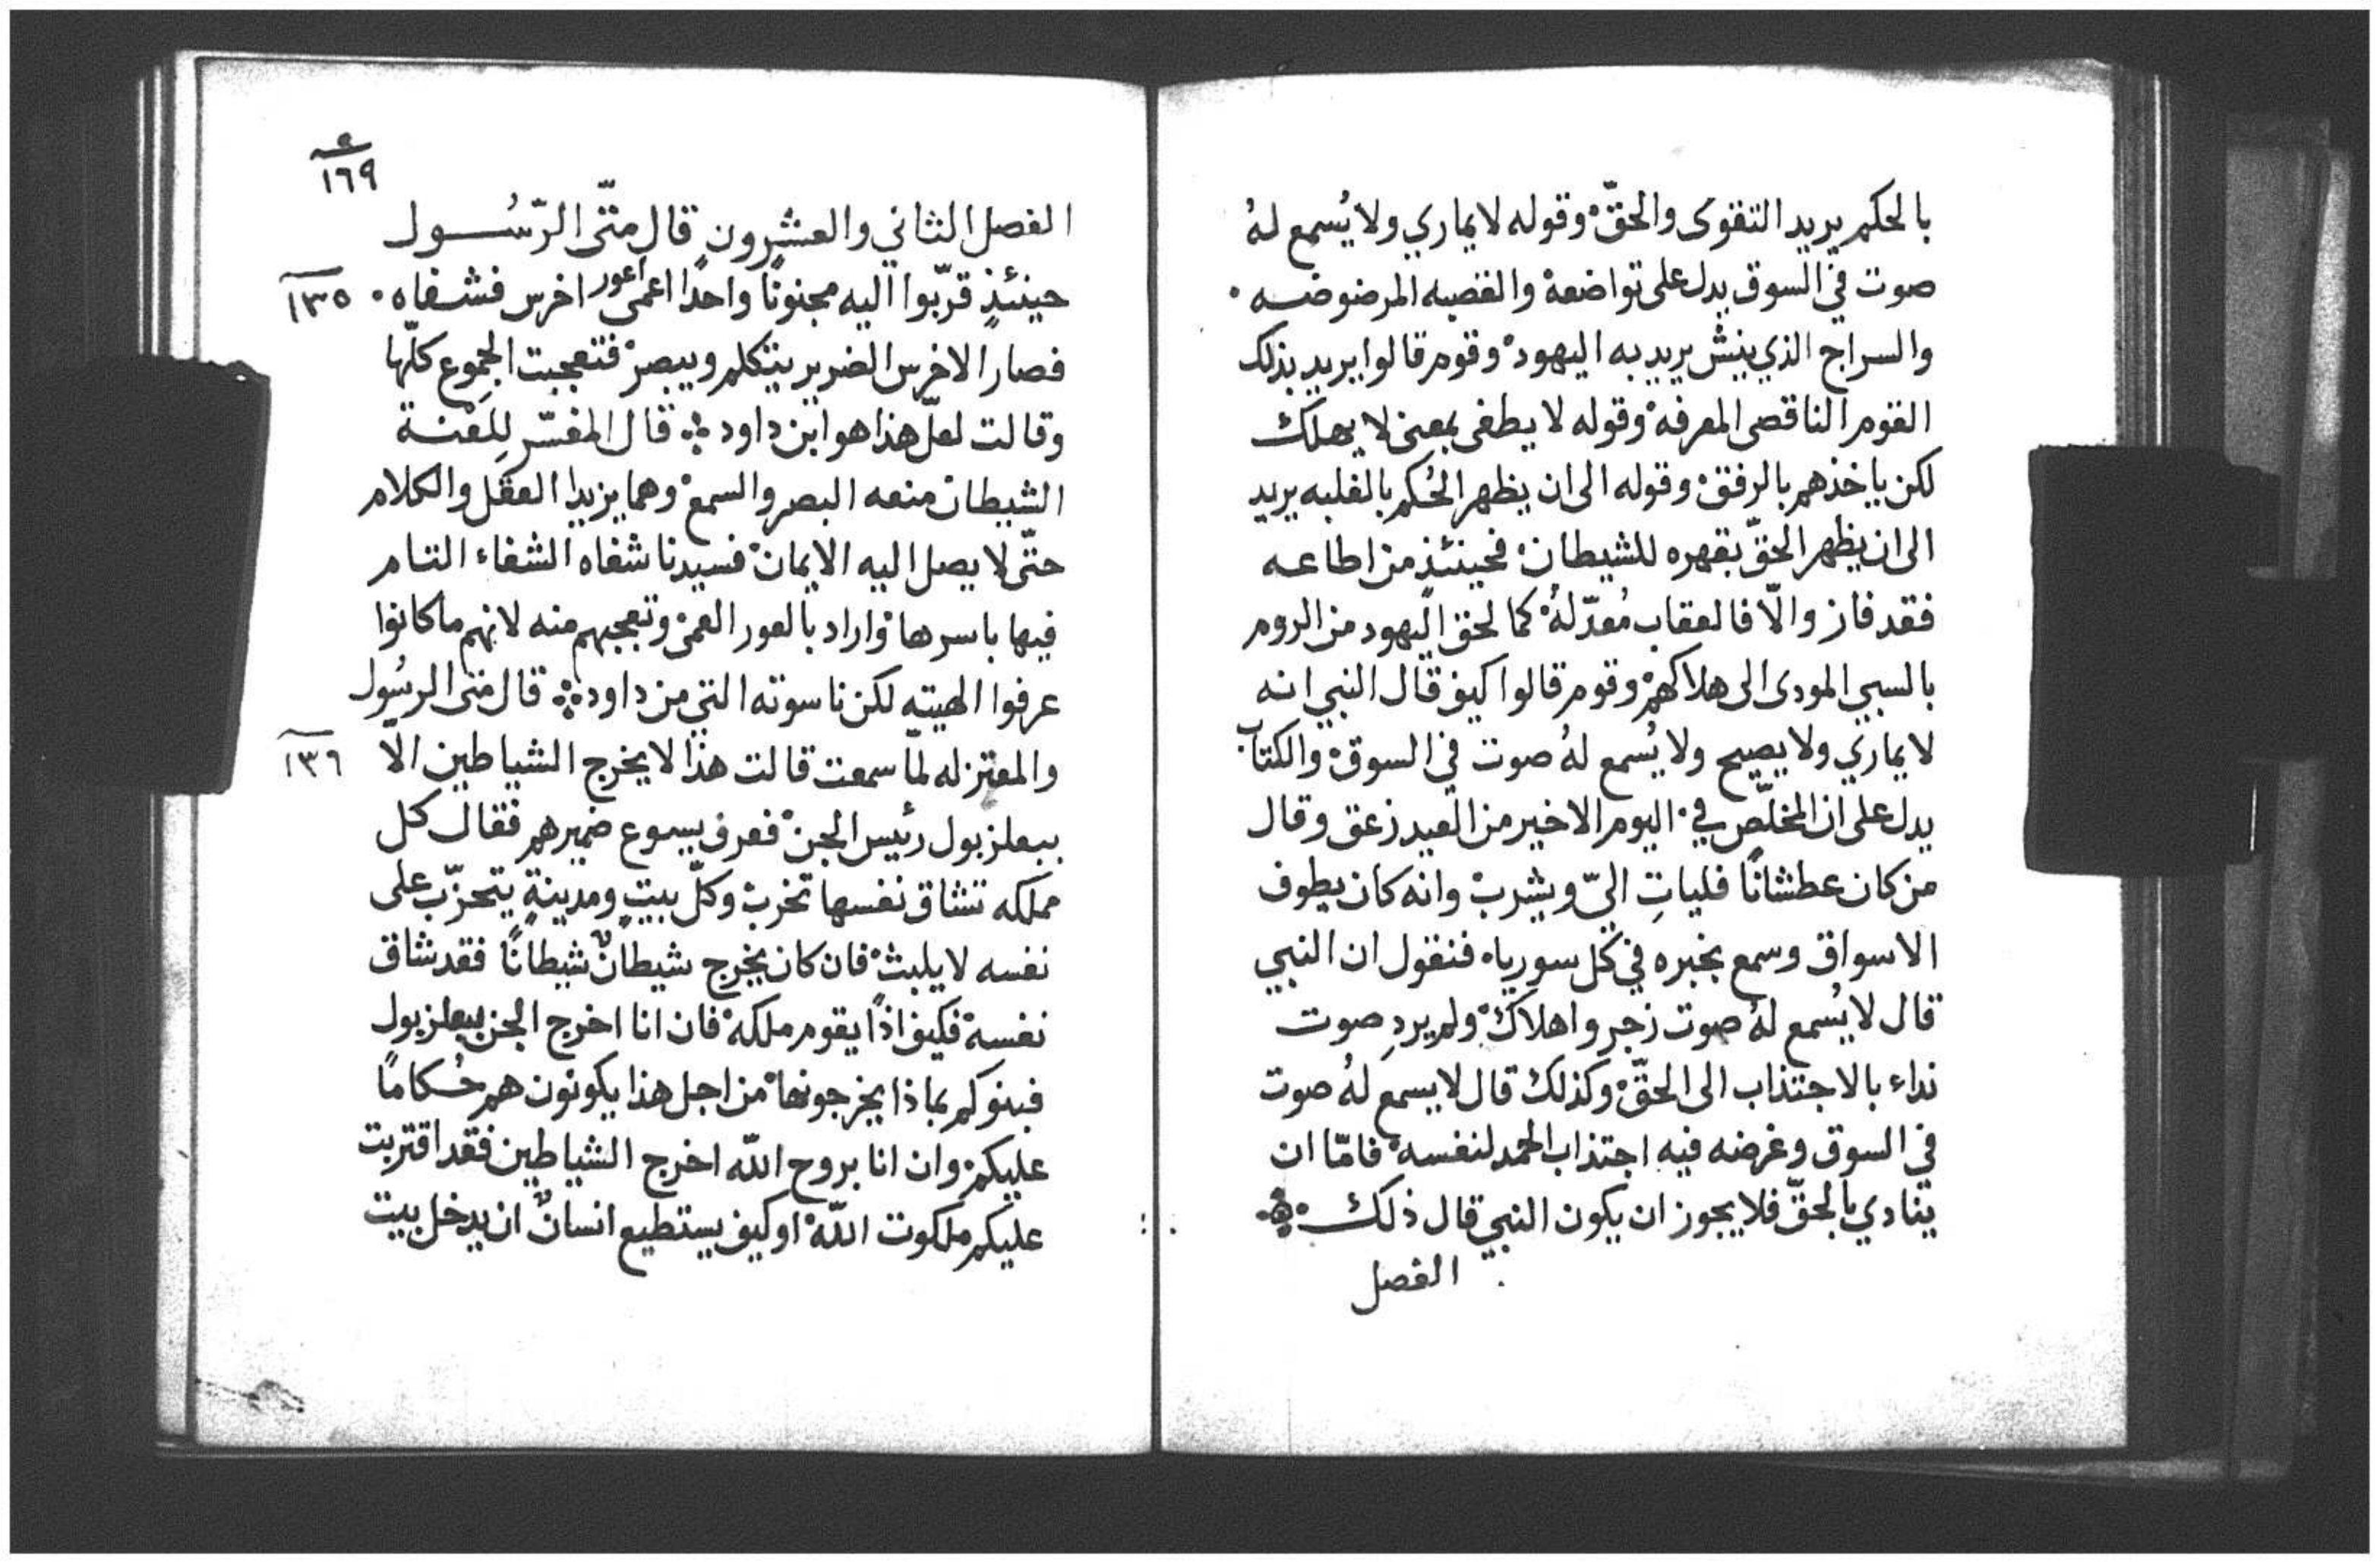 بالحكم يريد التقوى والحقّ وقوله لا يماري ولا يُسمع لهُ
صوت في السوق يدل على تواضعه والقصبه المرضوضه .
والسراج الذي ينش يريد به اليهود وقوم قالوا يريد بذلك
القوم الناقصي المعرفة وقوله لا يطفى بمعنى لا يهلك
لكن ياخذهم بالرفق وقوله الى ان يظهر الحُكم بالغلبه يريد
الى ان يظهر الحقّ بقهره للشيطان فحينئذٍ من اطاعه
فقد فاز والّا فالعقاب مُعدّ لهُ كما لحق اليهود من الروم
بالسبي المودى الى هلاكهم وقوم قالوا كيف قال النبي انه
لا يماري ولا يصيح ولا يُسمع لهُ صوت في السوق والكتاب
يدل على ان المخلّص في اليوم الاخير من العيد زعق وقال
من كان عطشانًا فلياتِ اليّ ويشرب وانه كان يطوف
الاسواق وسمع بخبره في كل سورياه فنقول ان النبي
قال لا يُسمع لهُ صوت زجر واهلاك ولم يردِ صوت
نداء بالاجتذاب الى الحقّ وكذلك قال لا يسمع لهُ صوت
في السوق وغرضه فيه اجتذاب الحمد لنفسه فامّا ان
ينادي بالحقّ فلا يجوز ان يكون النبي قال ذلك
الفصل
١٦٩
الفصل الثاني والعشرون قال متّى الرّسُول
حينئذٍ قرّبوا اليه مجنونًا واحدًا اعمى اعور اخرس فشفاه . ١٣٥
فصار الاخرس الضرير يتكلم ويبصر فتعجبت الجموع كلّها
وقالت لعلّ هذا هو ابن داود قال المفسّر للِعنة
الشيطان منعه البصر والسمع وهما يزيدا العقل والكلام
حتّى لا يصل اليه الايمان فسيدنا شفاه الشفاء التام
فيها باسرها واراد بالعور العمى وتعجبهم منه لانهم ما كانوا
عرفوا الهيته لكن ناسوته التي من داود قال متى الرسُول
والمعتزله لمّا سمعت قالت هذا لا يخرج الشياطين الّا ١٣٦
ببعلزبول رئيس الجن فعرف يسوع ضميرهم فقال كل
مملكه تشاق نفسها تخرب وكلّ بيتٍ ومدينةٍ يتحزّب على
نفسه لا يلبث فان كان يخرج شيطانٌ شيطانًا فقد شاق
نفسه فكيف اذًا يقوم ملكه فان انا اخرج الجن ببعلزبول
فبنوكم بماذا يخرجونها من اجل هذا يكونون هم حُكامًا
عليكم وان انا بروح اللّه اخرج الشياطين فقد اقتربت
عليكم ملكوت اللّه او كيف يستطيع انسانٌ ان يدخل بيت